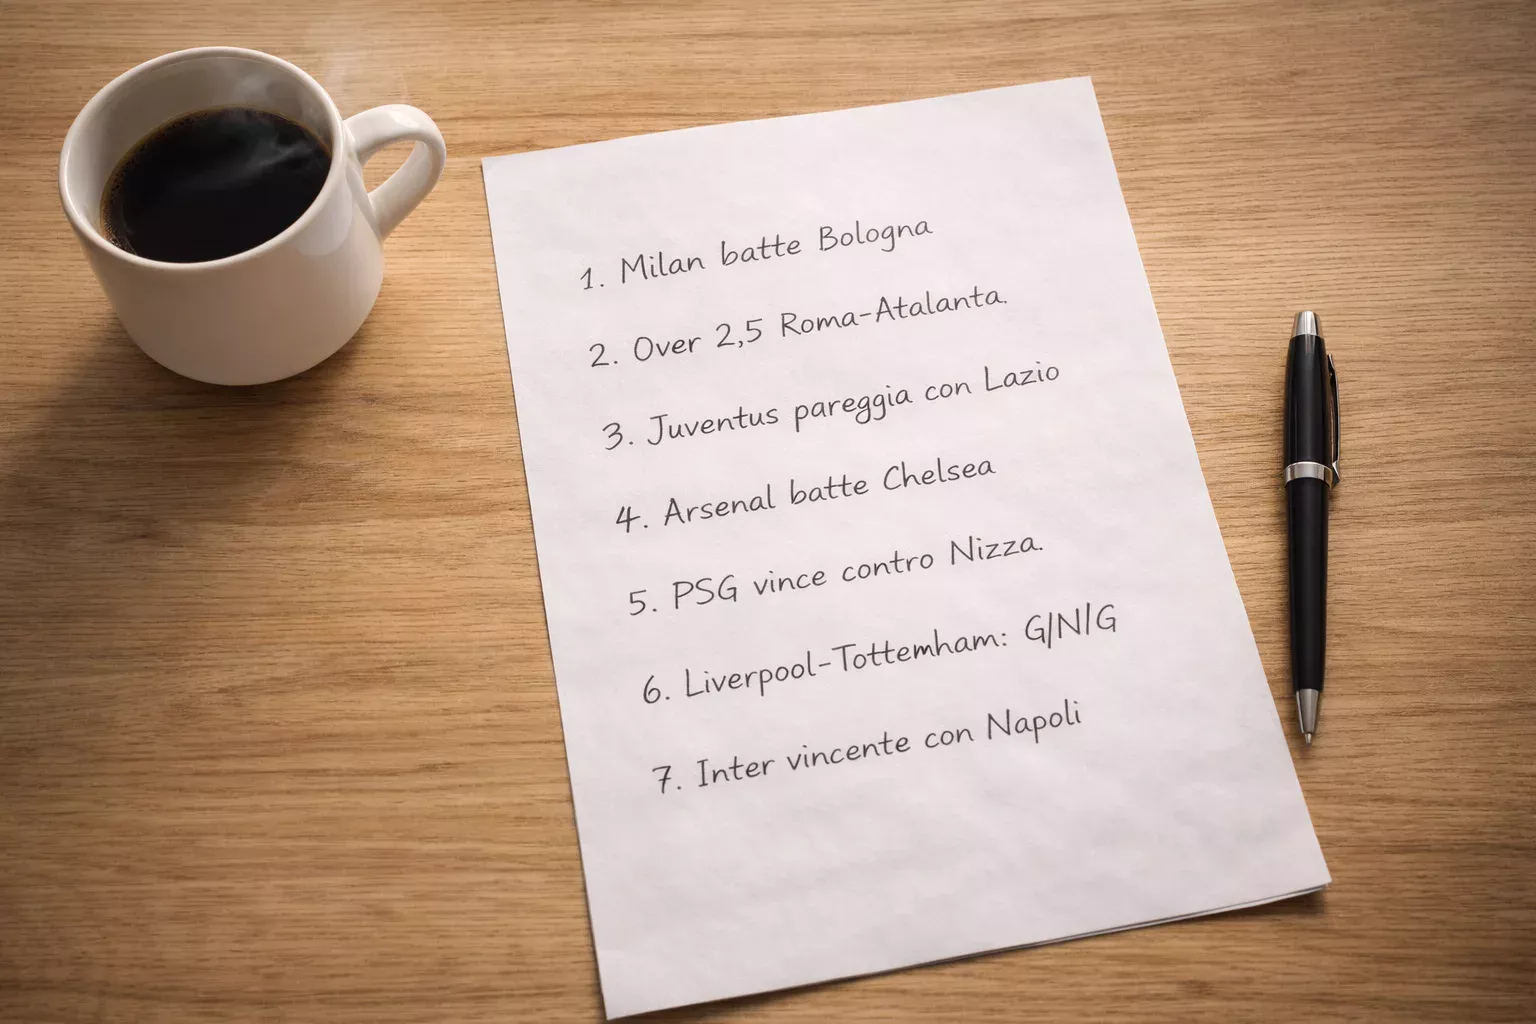 1. Milan batte Bologna
2. Over 2,5 Roma-Atalanta.
3. Juventus pareggia con Lazio
4. Arsenal batte Chelsea
5. PSG vince contro Nizza.
6. Liverpool-Tottemham: G/N/G
7. Inter vincente con Napoli